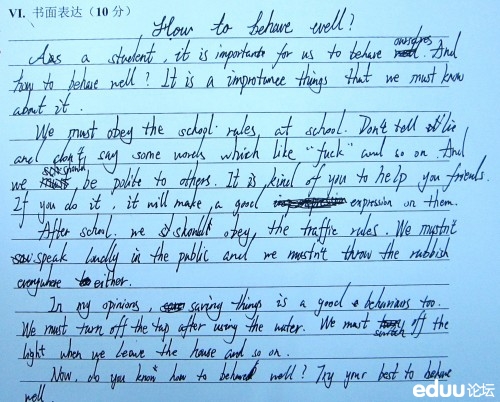 VI. 书面表达（10 分）
How to behave well?
As a student, it is important for us to behave ourselves. And
how to behave well? It is a improtance things that we must know
about it.
We must obey the school rules, at school. Don't tell lie
and don't say some words which like "fuck" and so on. And
we should be polite to others. It is kind of you to help you friends.
If you do it, it will make a good expression on them.
After school, we should obey the traffic rules. We mustn't
speak loudly in the public and we mustn't throw the rubbish
everywhere either.
In my opinions, saving things is a good behaviours too.
We must turn off the tap after using the water. We must switch off the
light when we leave the house and so on.
Now, do you know how to behave well? Try your best to behave
well.
eduu论坛